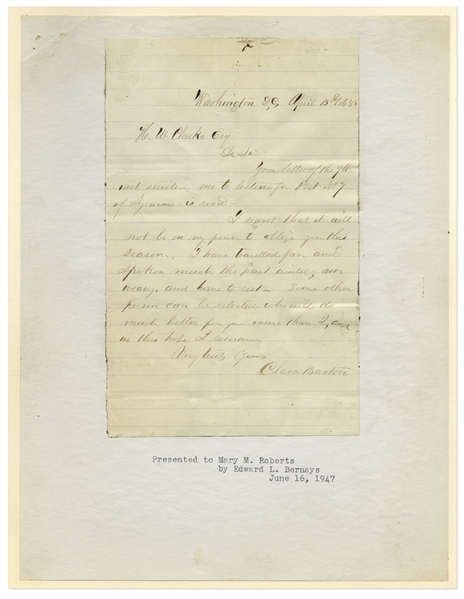 Washington D.C. April 13th 1868
H. W. Clarke Esq
Dr Sir
Your letter of the 9th
inst inviting me to lecture for Post No 7
of Syracuse is recd -
I regret that it will
not be in my power to oblige you this
season. I have travelled far and
spoken much the past winter, am
weary, and home to rest - Some other
person can be selected who will do
much better for your cause than I, and
in this hope I remain
Very truly Yours
Clara Barton
Presented to Mary M. Roberts
by Edward L. Bernays
June 16, 1947